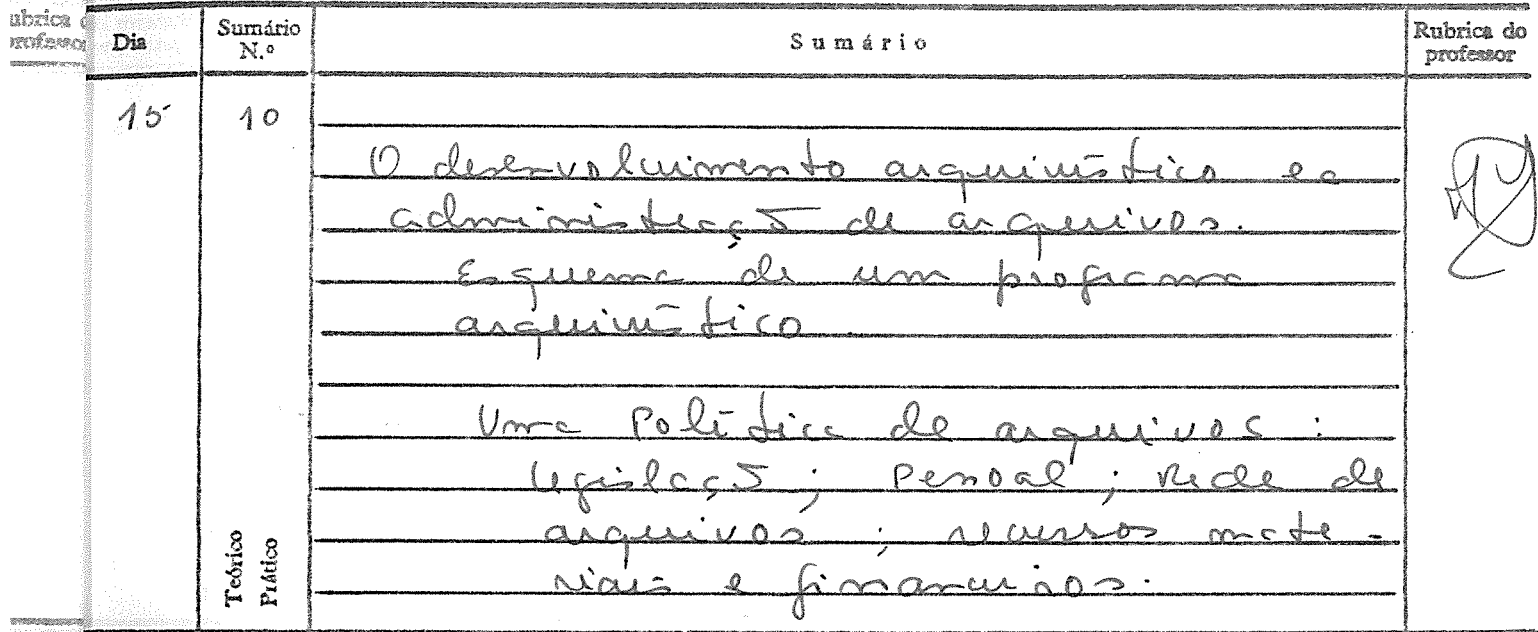 ubrica d
professor
Dia
Sumário
N.º
Sumário
Rubrica do
professor
15
10
O desenvolvimento arquivístico e a
administração de arquivos.
Esquema de um programa
arquivístico.
Uma Política de arquivos :
legislação ; Pessoal ; Rede de
arquivos ; recursos mate-
riais e financeiros.
Teórico
Prático